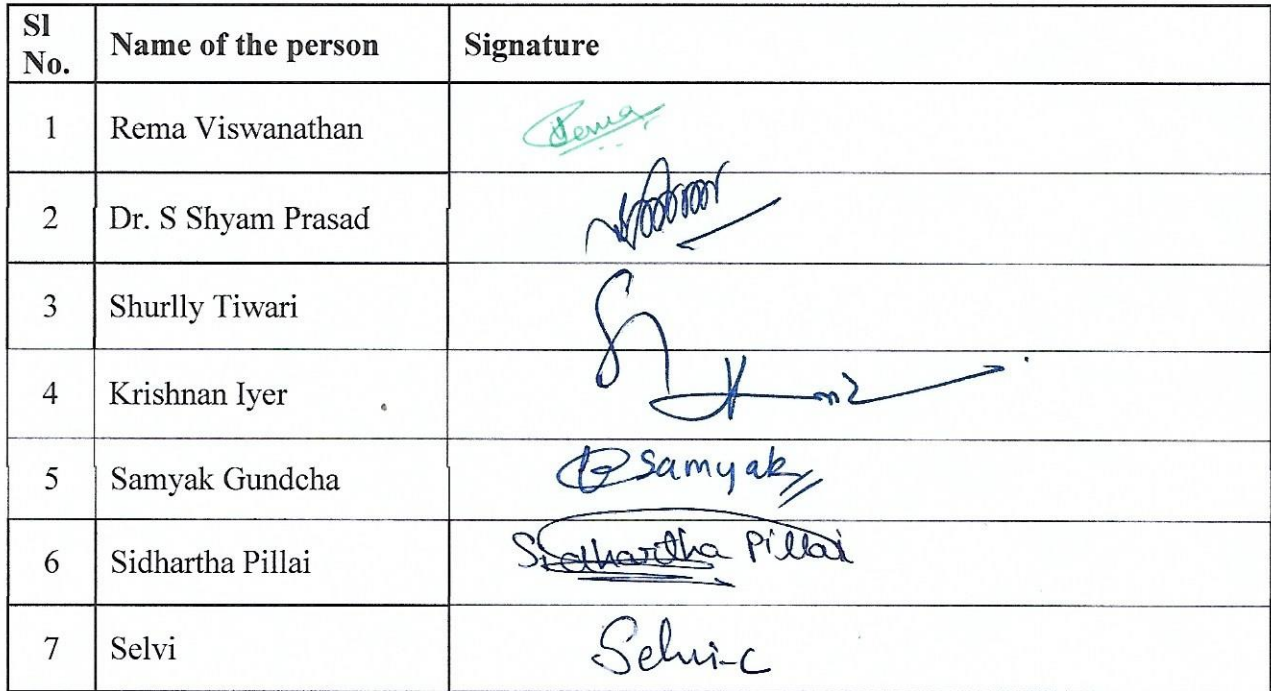 Sl No. Name of the person Signature
1 Rema Viswanathan Rema
2 Dr. S Shyam Prasad
3 Shurlly Tiwari
4 Krishnan Iyer
5 Samyak Gundcha Samyak
6 Sidhartha Pillai Sidhartha Pillai
7 Selvi Selvi-C